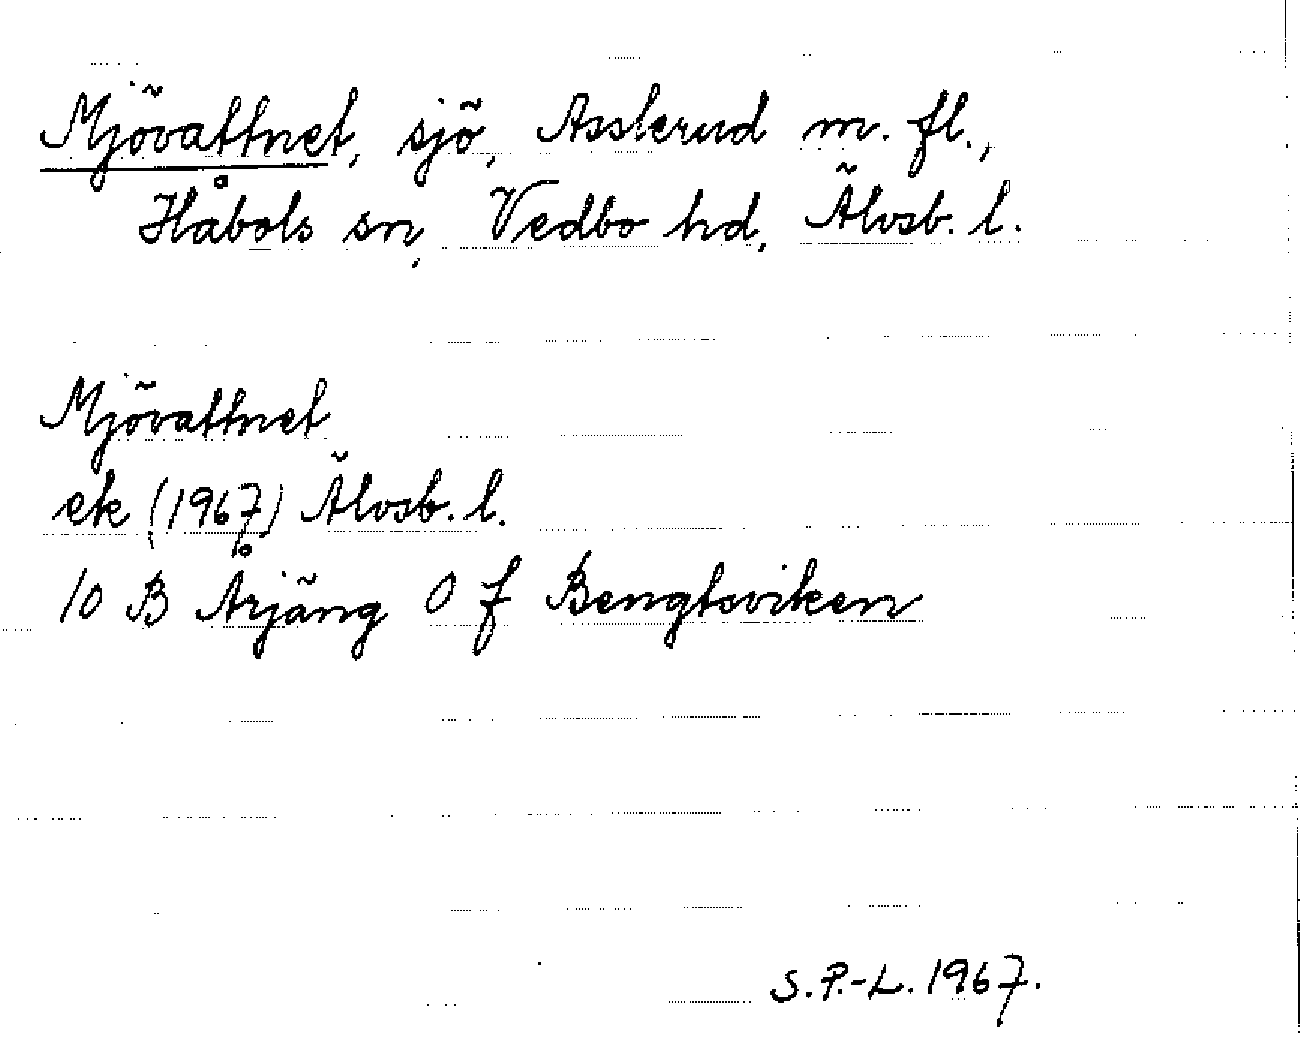 Mjövattnet, sjö, Asslerud m. fl.,
Håbols sn, Vedbo hd, Älvsb. l.
Mjövattnet
ek (1967) Älvsb. l.
10 B Årjäng 0 f Bengtsviken
S. P.-L. 1967.